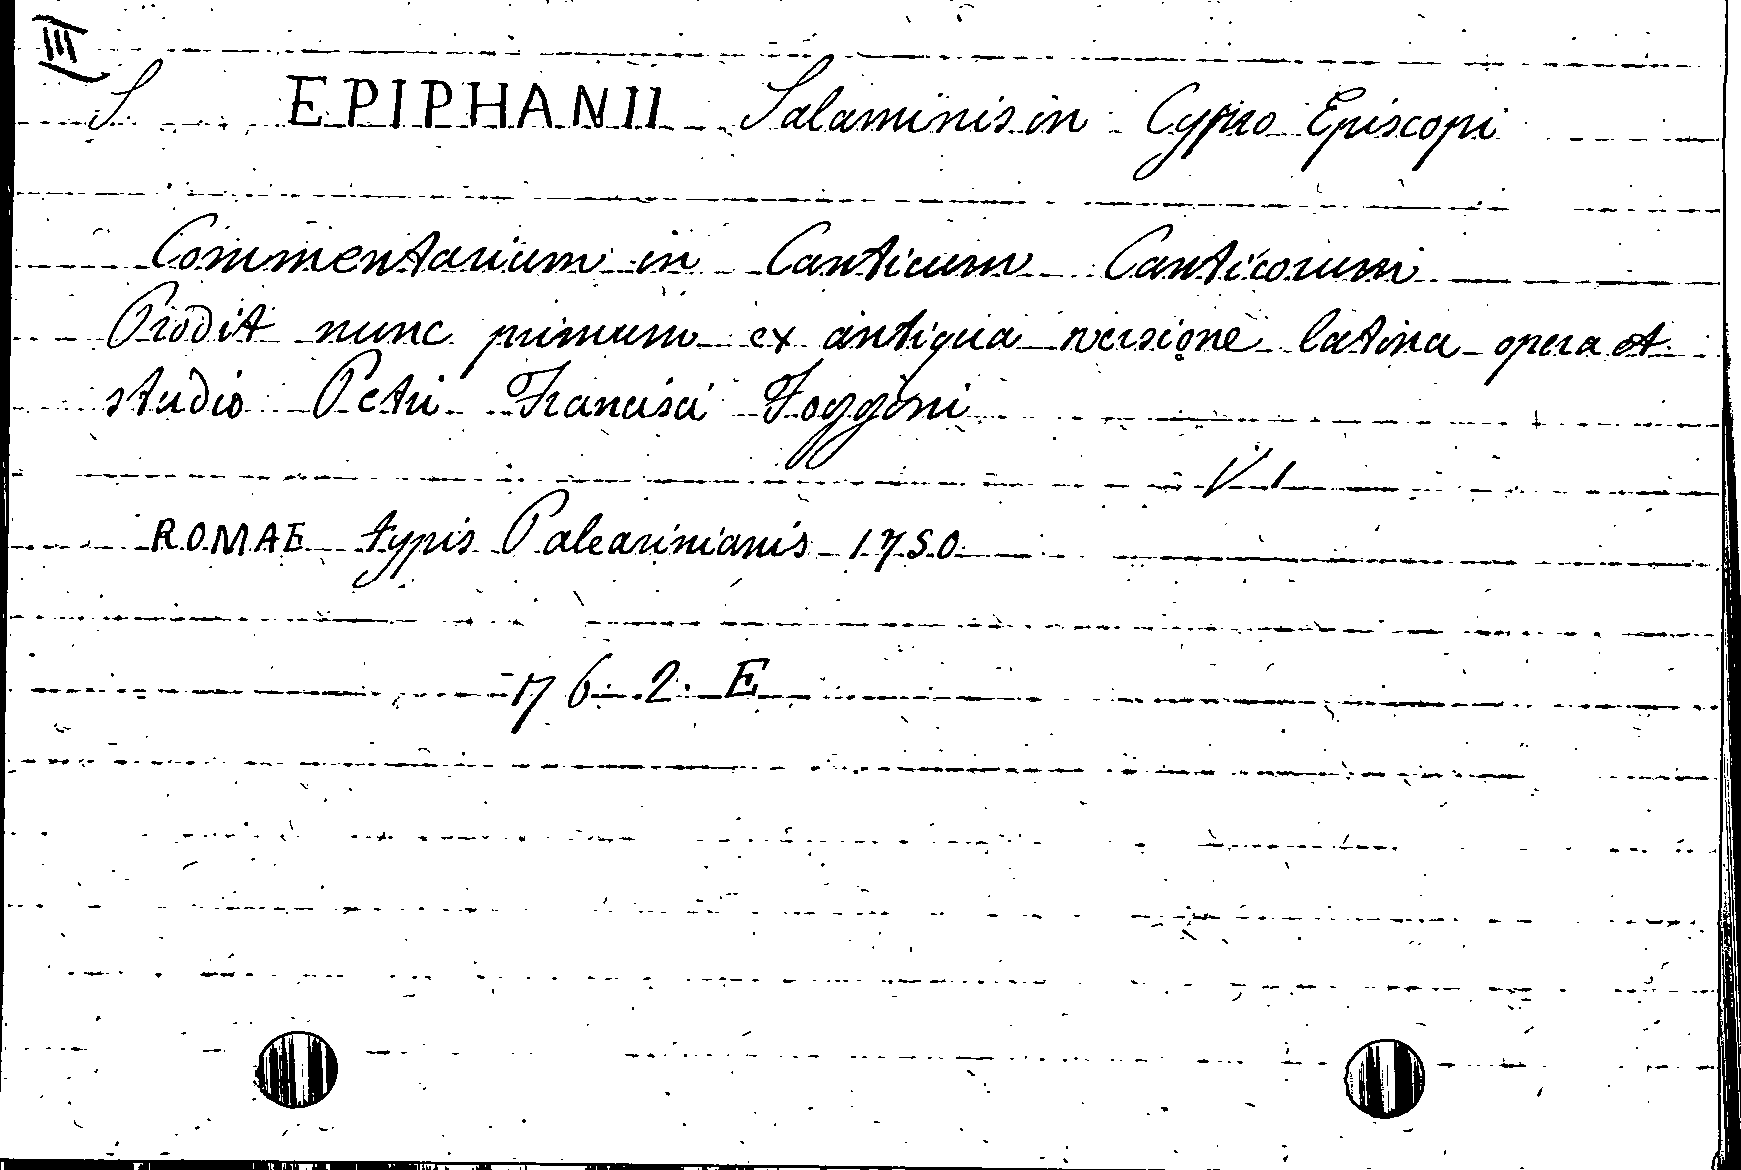 III
S EPIPHANII Salaminis in Cypro Episcopi
Commentarium in Canticum Canticorum
Prodit nunc primum ex antiqua versione latina opera et
studio Petri Francisci Foggini
V. 1
ROMAE typis Palearinianis 1750
76. 2. E